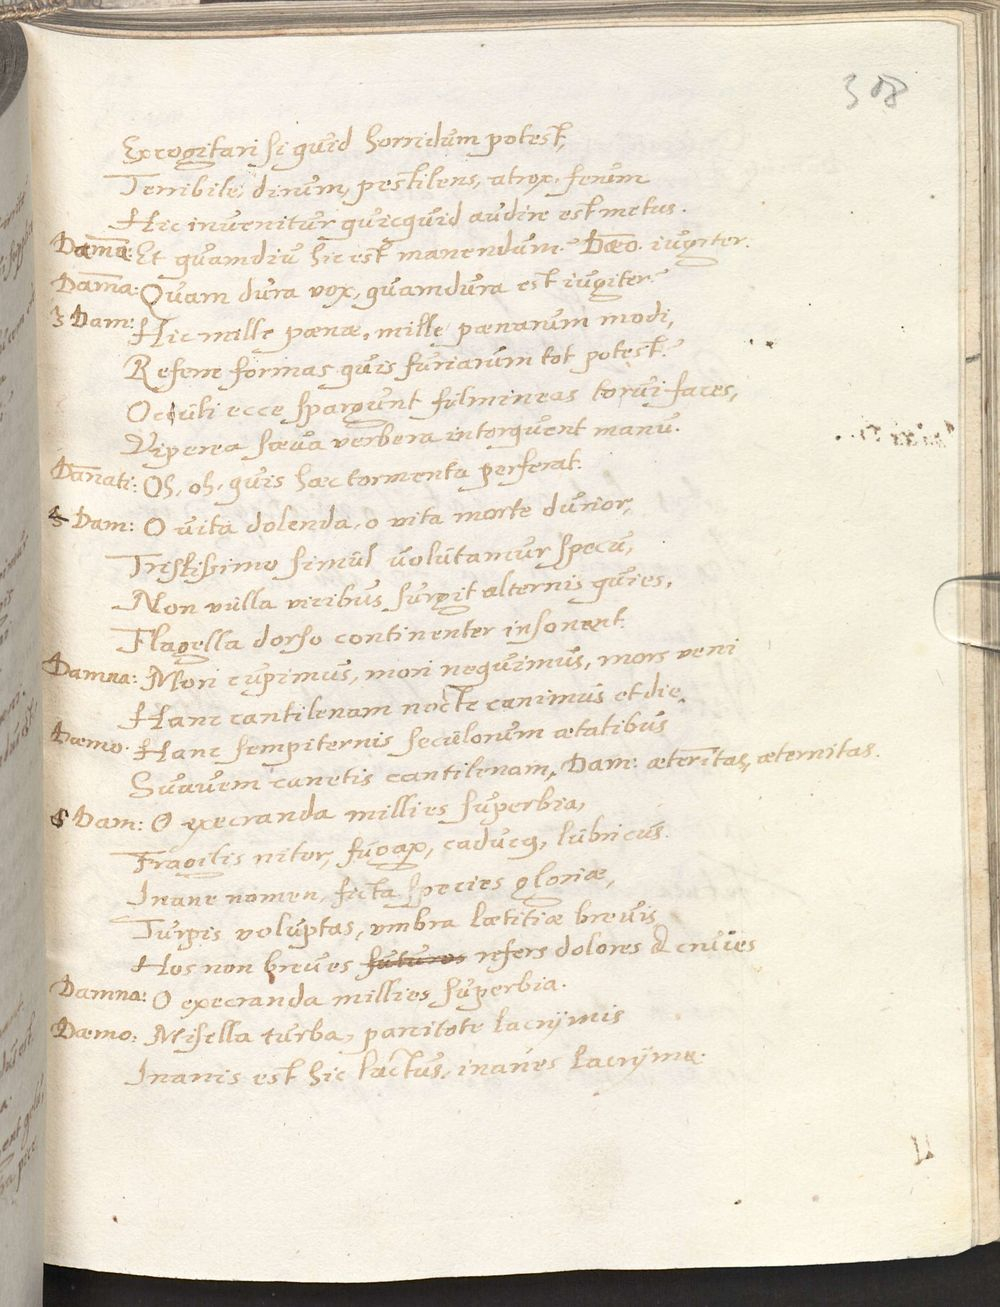 308
Excogitari si quid horridum potest,
Terribile, dirum, pestilens, atrox, ferum
Hic invenitur quicquid audire est metus.
Damnã: Et quamdiu hic est manendum? Dæo. iugiter.
Dam̃a: Quam dura vox, quam dura est iugiter?
3 Dam: Hic mille pænæ, mille pænarum modi,
Referre formas quis furiarum tot potest?
Oculi ecce spargunt fulmineas torui faces,
Viperea sæua verbera intorquent manu.
Dãnati: Oh, oh, quis hæc tormenta perferat.
4 Dam: O uita dolenda, o vita morte durior,
Tristissimo simul uolutamur specu,
Non vulla viribus surgit alternis quies,
Flagella dorso continenter insonant.
Damna: Mori cupimus, mori nequimus, mors veni
Hanc cantilenam nocte canimus et die.
Dæmo. Hanc sempiternis seculorum ætatibus
Suavem canetis cantilenam, Dam: æterñitas, æternitas.
5 Dam: O execranda millies superbia,
Fragilis nitor, fugax, caducq, lubricus.
Inane nomen, ficta species gloriæ,
Turpis voluptas, vmbra lætitiæ breuis
Hos non breues futuros refers dolores & crues
Damna: O execranda millies superbia.
Dæmo: Misella turba, parcitote lacrymis
Inanis est hic luctus, inanes lacrymæ.